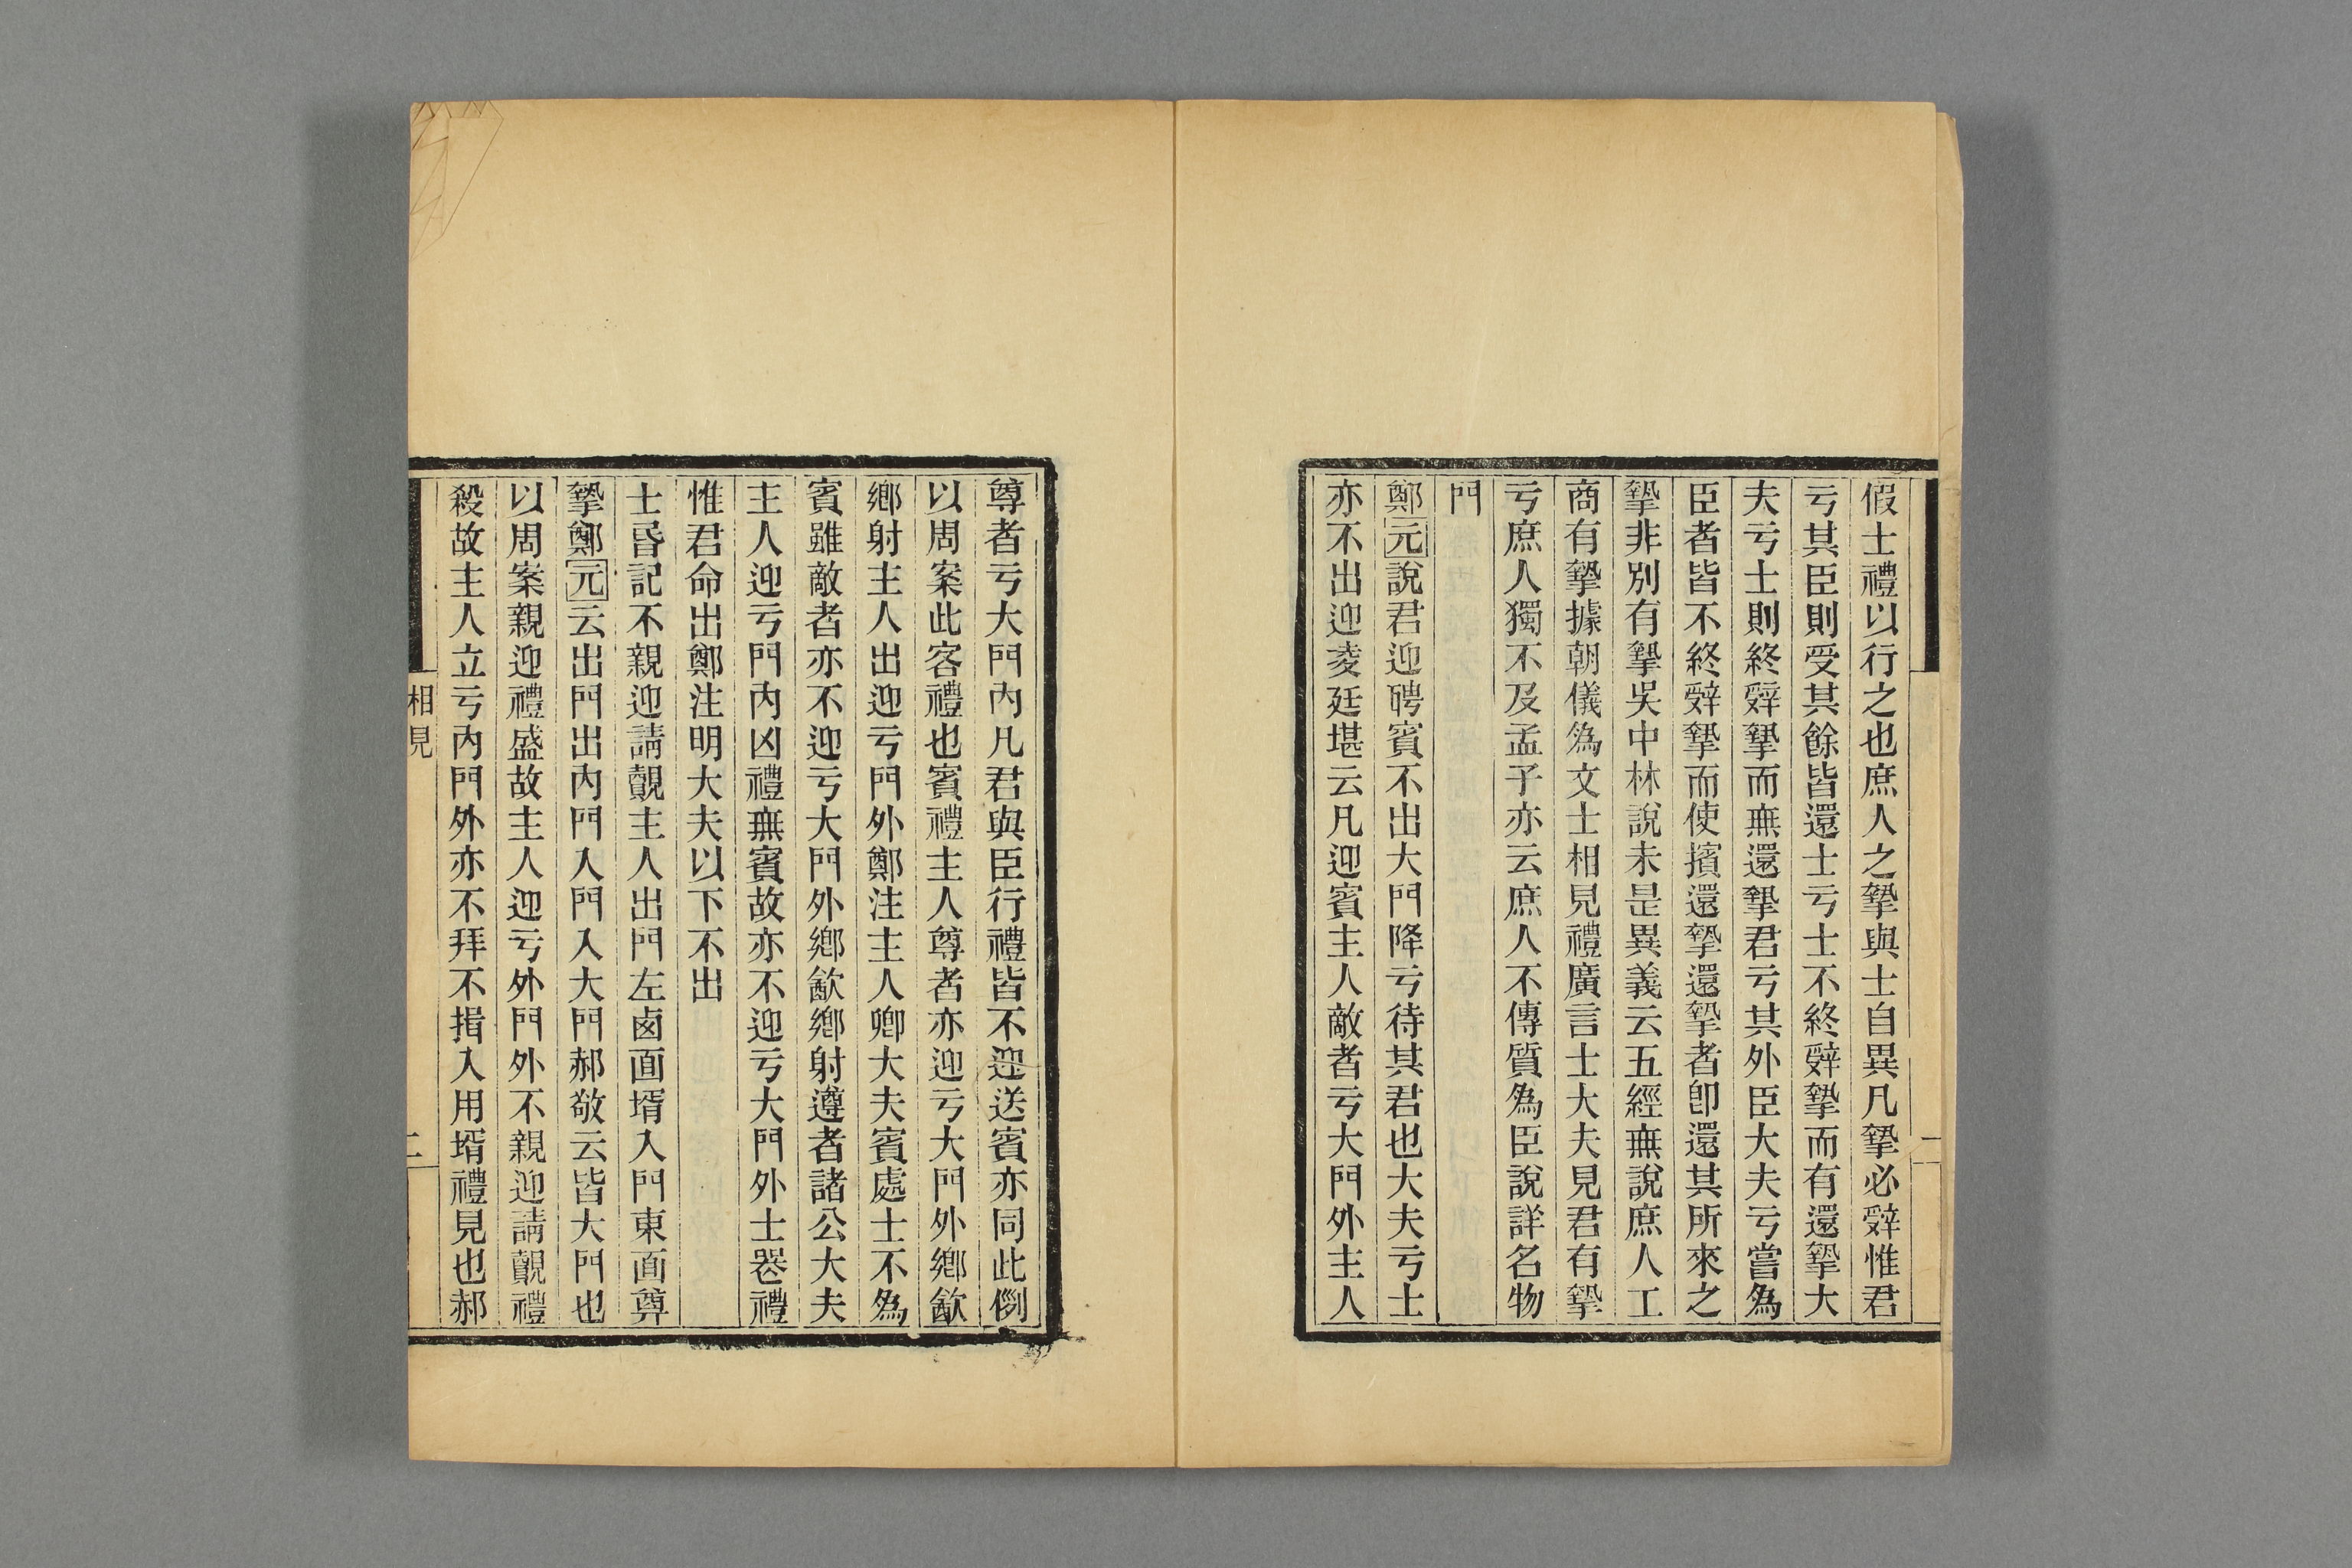 假士禮以行之也庶人之摯與士自異凡摯必辤惟君
亏其臣則受其餘皆還士亏士不終辤摯而有還摯大
夫亏士則終辤摯而無還摯君亏其外臣大夫亏嘗為
臣者皆不終辤摯而使擯還摯還摯者卽還其所來之
摯非別有摯吳中林說未是異義云五經無說庶人工
商有摯據朝儀為文士相見禮廣言士大夫見君有摯
亏庶人獨不及孟子亦云庶人不傳質為臣說詳名物
門
鄭元說君迎聘賓不出大門降亏待其君也大夫亏士
亦不出迎凌廷堪云凡迎賓主人敵者亏大門外主人
尊者亏大門內凡君與臣行禮皆不迎送賓亦同此例
以周案此客禮也賓禮主人尊者亦迎亏大門外鄉飲
鄉射主人出迎亏門外鄭注主人卿大夫賓處士不為
賓雖敵者亦不迎亏大門外鄉飲鄉射遵者諸公大夫
主人迎亏門內凶禮無賓故亦不迎亏大門外士喪禮
惟君命出鄭注明大夫以下不出
士昏記不親迎請覿主人出門左西面壻入門東面奠
摯鄭元云出門出內門入門入大門郝敬云皆大門也
以周案親迎禮盛故主人迎亏外門外不親迎請覿禮
殺故主人立亏內門外亦不拜不揖入用壻禮見也郝
相見
二